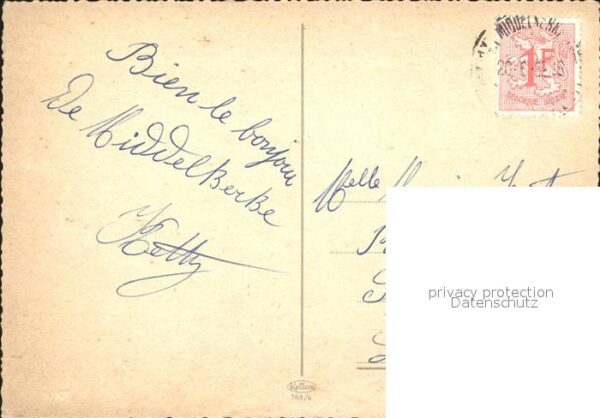 Bien le bonjour
De Middelkerke
Ketty
MIDDELKERKE
1F
BELGIQUE BELGIË
Melle
privacy protection
Datenschutz
768/6